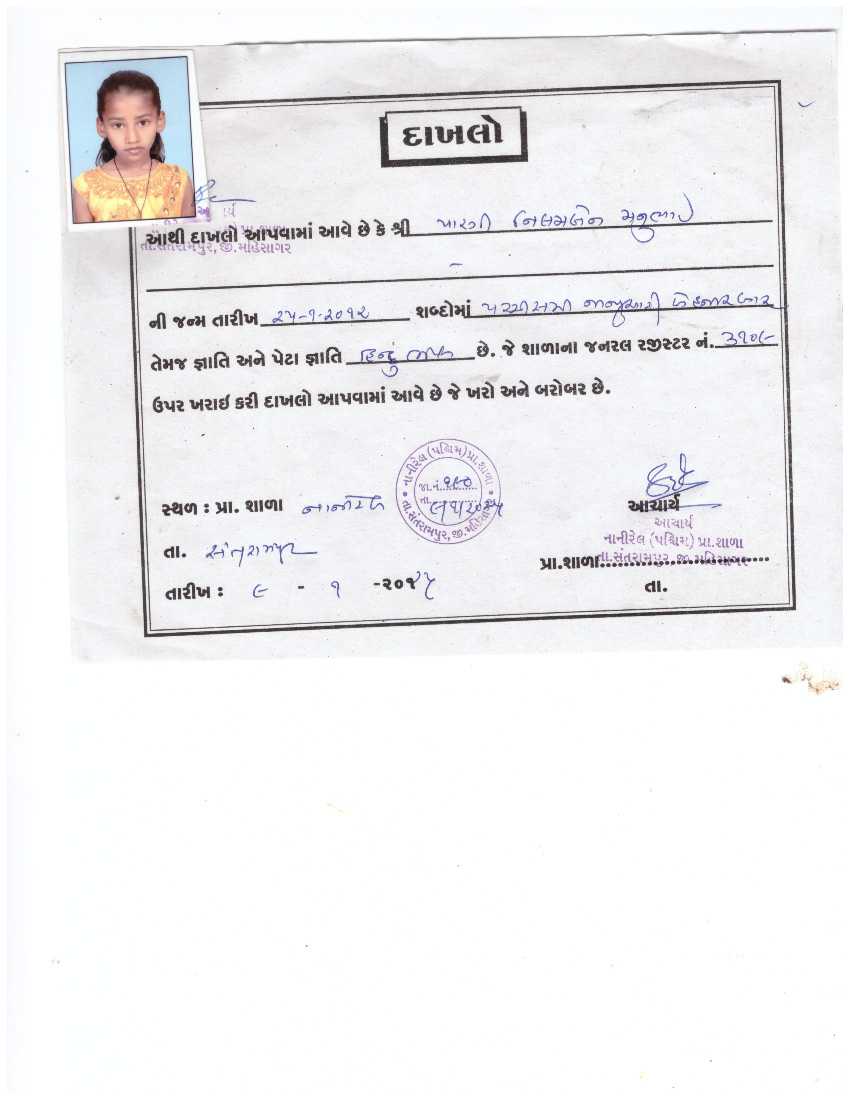 દાખલો
આથી દાખલો આપવામાં આવે છે કે શ્રી પારગી નિલમબેન મનુભાઈ
ની જન્મ તારીખ ૨૫-૧-૨૦૧૨ શબ્દોમાં પચ્ચીસમી જાન્યુઆરી બે હજાર બાર
તેમજ જ્ઞાતિ અને પેટા જ્ઞાતિ હિન્દુ ભીલ છે. જે શાળાના જનરલ રજીસ્ટર નં. ૩૧૦૯
ઉપર ખરાઇ કરી દાખલો આપવામાં આવે છે જે ખરો અને બરોબર છે.
નાનીરેલ (પશ્ચિમ) પ્રા.શાળા
જા.નં. ૧૯૦
તા.
તા.સંતરામપુર, જી.મહિસાગર
સ્થળ : પ્રા. શાળા નાનીરેલ
તા. સંતરામપુર
તારીખ : ૯ - ૧ -૨૦૨૫
આચાર્ય
આચાર્ય
નાનીરેલ (પશ્ચિમ) પ્રા.શાળા
તા.સંતરામપુર, જી. મહિસાગર
પ્રા.શાળા
તા.